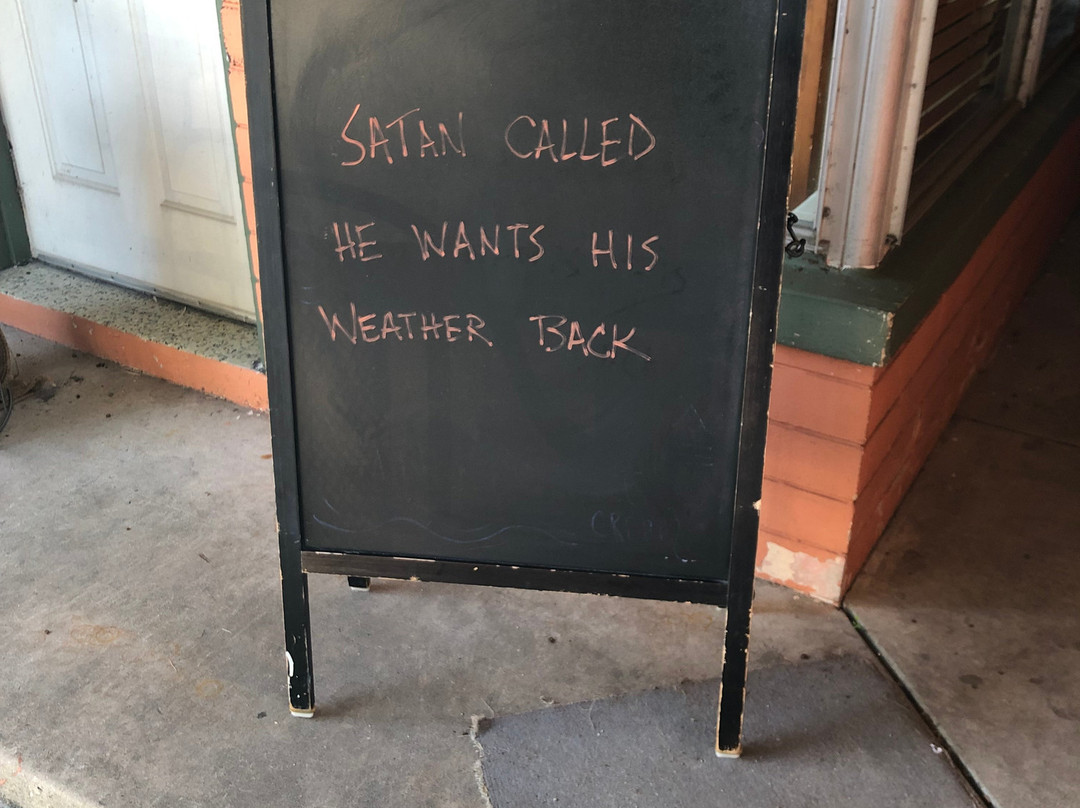 SATAN CALLED
HE WANTS HIS
WEATHER BACK